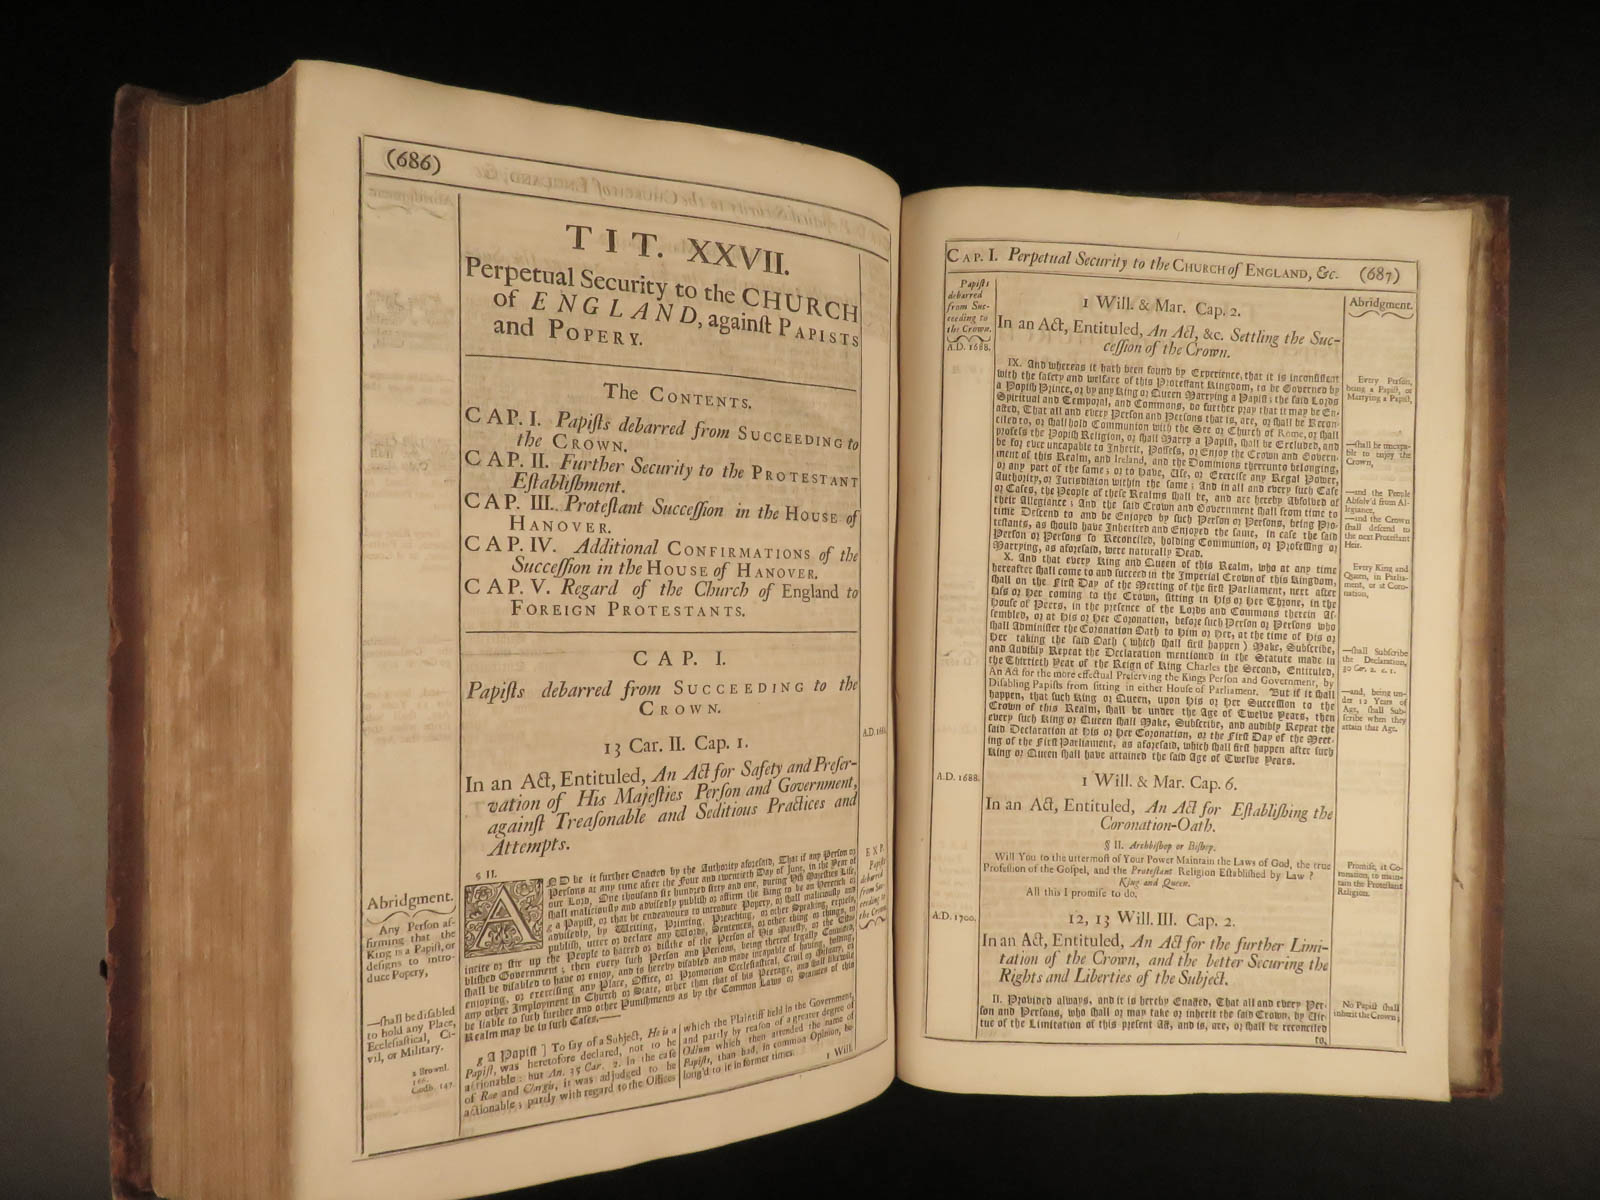 (686)
TIT. XXVII.
Perpetual Security to the CHURCH
of ENGLAND, againſt PAPISTS
and POPERY.
The CONTENTS.
CAP. I. Papiſts debarred from SUCCEEDING to
the CROWN.
CAP. II. Further Security to the PROTESTANT
Eſtabliſhment.
CAP. III. Proteſtant Succeſſion in the HOUSE of
HANOVER.
CAP. IV. Additional CONFIRMATIONS of the
Succeſſion in the HOUSE of HANOVER.
CAP. V. Regard of the Church of England to
FOREIGN PROTESTANTS.
CAP. I.
Papiſts debarred from SUCCEEDING to the
CROWN.
13 Car. II. Cap. 1.
In an Act, Entituled, An Act for Safety and Preſer-
vation of His Majeſties Perſon and Government,
againſt Treaſonable and Seditious Practices and
Attempts.
§ II.
AND be it further Enacted by the Authority aforeſaid, That if any Perſon or
Perſons at any time after the Four and twentieth Day of June, in the Year of
our Lord, One thouſand ſix hundred ſixty and one, during His Majeſties Life,
ſhall maliciouſly and adviſedly publiſh or affirm the King to be an Heretick or
g a Papiſt, or that he endeavours to introduce Popery, or ſhall maliciouſly and
adviſedly, by Writing, Printing, Preaching, or other Speaking, expreſs,
publiſh, utter or declare any Words, Sentences, or other thing or things, to
incite or ſtir up the People to hatred or diſlike of the Perſon of His Majeſty, or the Eſta-
bliſhed Government; then every ſuch Perſon and Perſons, being thereof legally Convicted,
ſhall be diſabled to have or enjoy, and is hereby diſabled and made incapable of having, holding,
enjoying, or exerciſing any Place, Office, or Promotion Eccleſiaſtical, Civil or Military, or
any other Imployment in Church or State, other than that of his Peerage, and ſhall likewiſe
be liable to ſuch further and other Puniſhments as by the Common Laws or Statutes of this
Realm may be in ſuch Caſes,——
g A Papiſt ] To ſay of a Subject, He is a
Papiſt, was heretofore declared, not to be
actionable: but An. 35 Car. 2. in the caſe
of Roe and Clargis, it was adjudged to be
actionable; partly with regard to the Offices
which the Plaintiff held in the Government,
and partly by reaſon of a greater degree of
Odium which then attended the name of
Papiſts, than had, in common Opinion, be-
long'd to it in former times.
1 Will.
Abridgment.
Any Perſon af-
firming that the
King is a Papiſt, or
deſigns to intro-
duce Popery,
—ſhall be diſabled
to hold any Place,
Eccleſiaſtical, Ci-
vil, or Military.
2 Brownl.
166.
Godb. 147.
A.D. 1661.
EXP.
Papiſts
debarred
from Suc-
ceeding to
the Crown.
CAP. I. Perpetual Security to the CHURCH of ENGLAND, &c. (687)
Papiſts
debarred
from Suc-
ceeding to
the Crown.
A.D. 1688.
1 Will. & Mar. Cap. 2.
In an Act, Entituled, An Act, &c. Settling the Suc-
ceſſion of the Crown.
IX. And whereas it hath been found by Experience, that it is inconſiſtent
with the ſafety and welfare of this Proteſtant Kingdom, to be Governed by
a Popiſh Prince, or by any King or Queen Marrying a Papiſt; the ſaid Lords
Spiritual and Temporal, and Commons, do further pray that it may be En-
acted, That all and every Perſon and Perſons that is, are, or ſhall be Recon-
ciled to, or ſhall hold Communion with the See or Church of Rome, or ſhall
profeſs the Popiſh Religion, or ſhall Marry a Papiſt, ſhall be Excluded, and
be for ever uncapable to Inherit, Poſſeſs, or Enjoy the Crown and Govern-
ment of this Realm, and Ireland, and the Dominions thereunto belonging,
or any part of the ſame; or to have, Uſe, or Exerciſe any Regal Power,
Authority, or Jurisdiction within the ſame; And in all and every ſuch Caſe
or Caſes, the People of theſe Realms ſhall be, and are hereby Abſolved of
their Allegiance; And the ſaid Crown and Government ſhall from time to
time Deſcend to and be Enjoyed by ſuch Perſon or Perſons, being Pro-
teſtants, as ſhould have Inherited and Enjoyed the ſame, in caſe the ſaid
Perſon or Perſons ſo Reconciled, holding Communion, or Profeſſing or
Marrying, as aforeſaid, were naturally Dead.
X. And that every King and Queen of this Realm, who at any time
hereafter ſhall come to and ſucceed in the Imperial Crown of this Kingdom,
ſhall on the Firſt Day of the Meeting of the firſt Parliament, next after
His or Her coming to the Crown, ſitting in His or Her Throne, in the
Houſe of Peers, in the preſence of the Lords and Commons therein Aſ-
ſembled, or at His or Her Coronation, before ſuch Perſon or Perſons who
ſhall Adminiſter the Coronation Oath to Him or Her, at the time of His or
Her taking the ſaid Oath (which ſhall firſt happen) Make, Subſcribe,
and Audibly Repeat the Declaration mentioned in the Statute made in
the Thirtieth Year of the Reign of King Charles the Second, Entituled,
An Act for the more effectual Preſerving the Kings Perſon and Government, by
Diſabling Papiſts from ſitting in either Houſe of Parliament. But if it ſhall
happen, that ſuch King or Queen, upon His or Her Succeſſion to the
Crown of this Realm, ſhall be under the Age of Twelve Years, then
every ſuch King or Queen ſhall Make, Subſcribe, and audibly Repeat the
ſaid Declaration at His or Her Coronation, or the Firſt Day of the Meet-
ing of the Firſt Parliament, as aforeſaid, which ſhall firſt happen after ſuch
King or Queen ſhall have attained the ſaid Age of Twelve Years.
A.D. 1688.
1 Will. & Mar. Cap. 6.
In an Act, Entituled, An Act for Eſtabliſhing the
Coronation-Oath.
§ II. Archbiſhop or Biſhop.
Will You to the uttermoſt of Your Power Maintain the Laws of God, the true
Profeſſion of the Goſpel, and the Proteſtant Religion Eſtabliſhed by Law?
King and Queen.
All this I promiſe to do.
A.D. 1700.
12, 13 Will. III. Cap. 2.
In an Act, Entituled, An Act for the further Limi-
tation of the Crown, and the better Securing the
Rights and Liberties of the Subject.
II. Provided always, and it is hereby Enacted, That all and every Per-
ſon and Perſons, who ſhall or may take or inherit the ſaid Crown, by Vir-
tue of the Limitation of this preſent Act, and is, are, or ſhall be reconciled
to,
Abridgment.
Every Perſon,
being a Papiſt, or
Marrying a Papiſt,
—ſhall be uncapa-
ble to enjoy the
Crown,
—and the People
Abſolv'd from Al-
legiance,
—and the Crown
ſhall deſcend to
the next Proteſtant
Heir.
Every King and
Queen, in Parlia-
ment, or at Coro-
nation,
—ſhall Subſcribe
the Declaration,
30 Car. 2. c. 1.
—and, being un-
der 12 Years of
Age, ſhall Sub-
ſcribe when they
attain that Age.
Promiſe, at Co-
ronation, to main-
tain the Proteſtant
Religion.
No Papiſt ſhall
inherit the Crown;